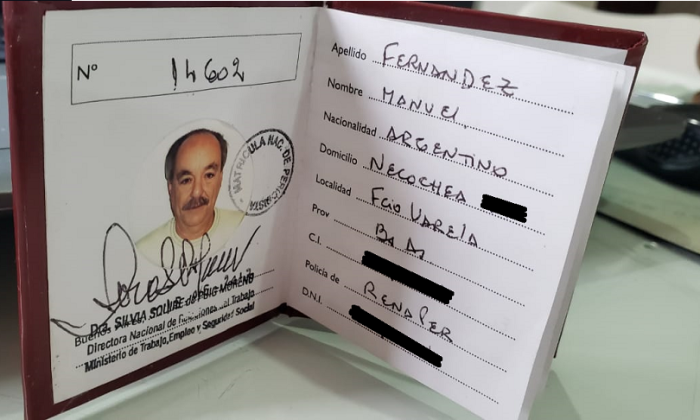 Nº 14602
MATRICULA NAC. DE PERIODISTA
DRA. SILVIA SQUIRE de PUIG MORENO
Buenos Aires,
Directora Nacional de del Trabajo
Ministerio de Trabajo, Empleo y Seguridad Social
Apellido FERNANDEZ
Nombre MANUEL
Nacionalidad ARGENTINO
Domicilio NECOCHEA
Localidad FCIO VARELA
Prov Bs As
C.I.
Policía de RENAPER
D.N.I.